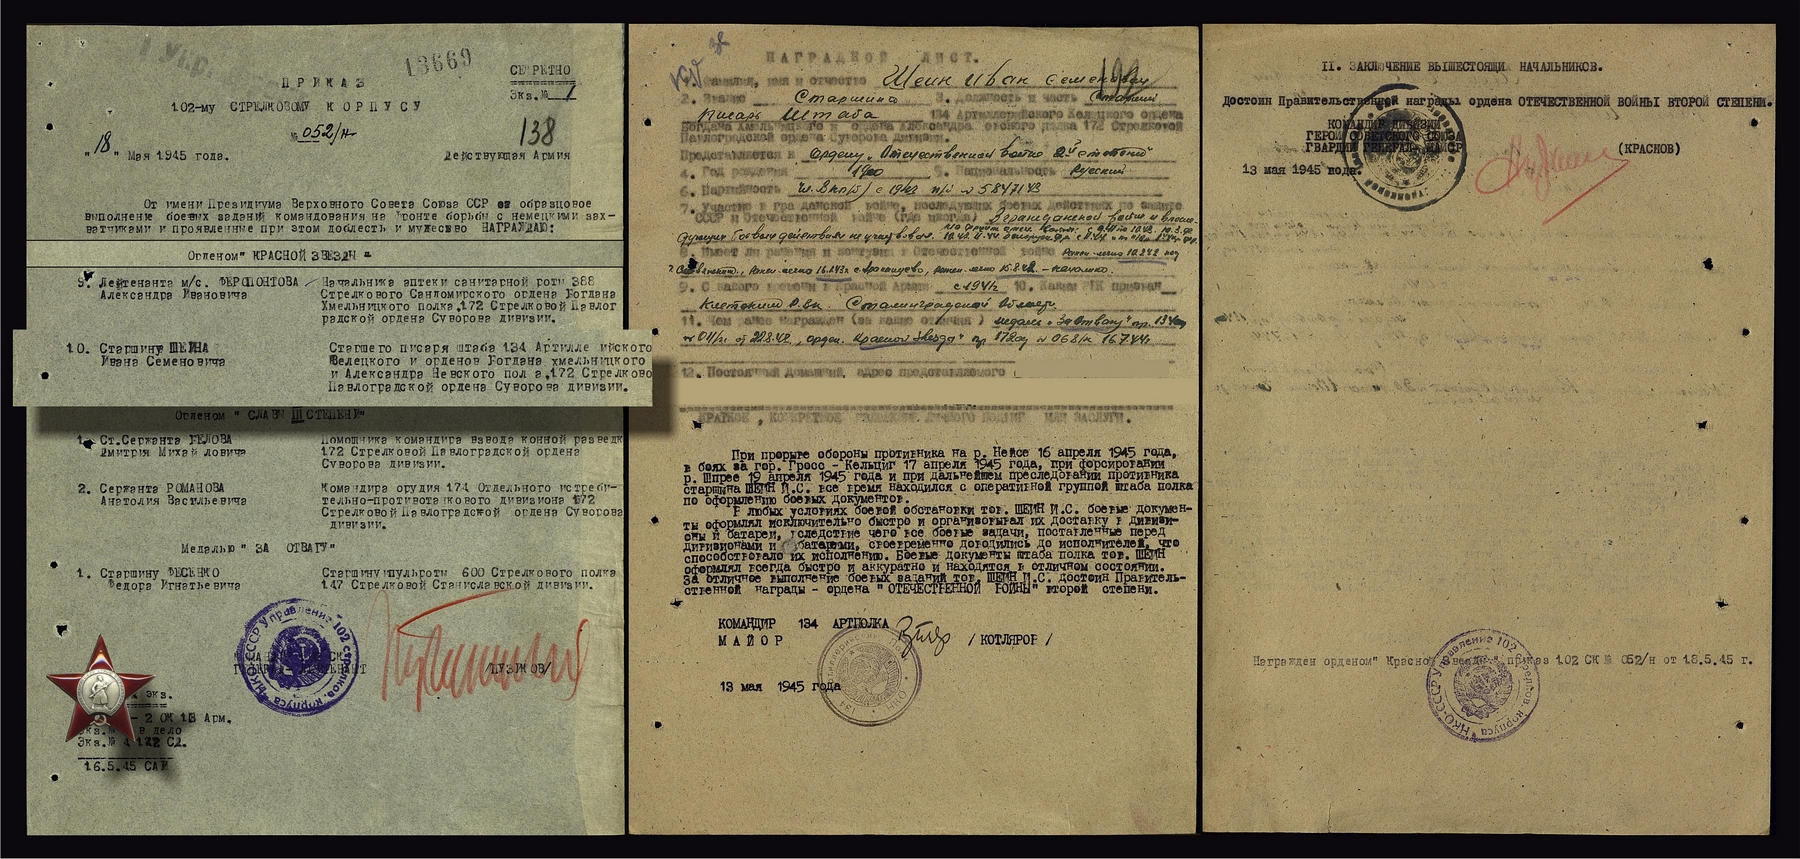 13669
ПРИКАЗ
СЕКРЕТНО
Экз.№ 1
102-му СТРЕЛКОВОМУ КОРПУСУ
№ 052/н
138
"18" Мая 1945 года.
Действующая Армия
От имени Президиума Верховного Совета Союза ССР за образцовое
выполнение боевых заданий командования на фронте борьбы с немецкими зах-
ватчиками и проявленные при этом доблесть и мужество НАГРАЖДАЮ:
Орденом" КРАСНОЙ ЗВЕЗДЫ "
9. Лейтенанта м/с. ФЕРОПОНТОВА Начальника аптеки санитарной роты 388
Александра Ивановича Стрелкового Сандомирского ордена Богдана
Хмельницкого полка,172 Стрелковой Павлог
радской ордена Суворова дивизии.
10. Старшину ШЕИНА Старшего писаря штаба 134 Артилле ийского
Ивана Семеновича Келецкого и орденов Богдана хмельницкого
и Александра Невского пол а,172 Стрелково
Павлоградской ордена Суворова дивизии.
Орденом " СЛАВЫ III СТЕПЕНИ"
1. Ст.Сержанта БЕЛОВА Помошника командира взвода конной разведк
Дмитрия Михайловича 172 Стрелковой Павлоградской ордена
Суворова дивизии.
2. Сержанта РОМАНОВА Командира орудия 174 Отдельного истреби-
Анатолия Васильевича тельно-противотанкового дивизиона 172
Стрелковой Павлоградской ордена Суворова
дивизии.
Медалью " ЗА ОТВАГУ"
1. Старшину ФЕСЕНКО Старшину пульроты 600 Стрелкового полка
Федора Игнатьевича 147 Стрелковой Станиславской дивизии.
/ПУЗИКОВ/
НКО-СССР Управление 102 стрелков. корпуса
экз.
- 2 ОК 13 Арм.
в дело
Экз.№ 4 172 СД.
16.5.45 САИ
НАГРАДНОЙ ЛИСТ.
1. Фамилия, имя и отчество Шеин Иван Семенович
2. Звание Старшина 3. Должность и часть Старший
писарь Штаба 134 Артиллерийского Келецкого ордена
Богдана Хмельницкого и ордена Александра Невского полка 172 Стрелковой
Павлоградской ордена Суворова дивизии.
Представляется к ордену "Отечественной войны 2й степени"
4. Год рождения 1900 5. Национальность Русский
6. Партийность чл. ВКП/б/ с 1942 п/б № 5847143
7. Участие в гражданской войне, последующих боевых действиях по защите
СССР и Отечественной войне (где и когда) В гражданской войне и после-
дующих боевых действиях не участвовал.
8. Имеет ли ранения и контузии в Отечественной войне Ранен легко 10.2.42 под
9. С какого времени в Красной Армии с 1941г 10. Каким РВК призван
Клетским Рвк. Сталинградской области
11. Чем ранее награжден (за какие отличия) медаль "За Отвагу" пр. 134
№ 04/н от 22.8.42, орден "Красной Звезды" пр 172сд № 068/н 16.7.44г
12. Постоянный домашний, адрес представляемого
КРАТКОЕ , КОНКРЕТНОЕ ИЗЛОЖЕНИЕ ЛИЧНОГО ПОДВИГА ИЛИ ЗАСЛУГИ.
При прорыве обороны противника на р. Нейсе 16 апреля 1945 года,
в боях за гор. Гросс - Кельциг 17 апреля 1945 года, при форсировании
р. Шпрее 19 апреля 1945 года и при дальнейшем преследовании противника
старшина ШЕИН И.С. все время находился с оперативной группой штаба полка
по оформлению боевых документов.
В любых условиях боевой обстановки тов. ШЕИН И.С. боевые докумен-
ты оформлял исключительно быстро и организовывал их доставку в дивизи-
оны и батареи, вследствие чего все боевые задачи, поставленные перед
дивизионами и батареями, своевременно доводились до исполнителей, что
способствовало их исполнению. Боевые документы штаба полка тов. ШЕИН
оформлял всегда быстро и аккуратно и находятся в отличном состоянии.
За отличное выполнение боевых заданий тов. ШЕИН И.С. достоин Правитель-
ственной награды - ордена "ОТЕЧЕСТВЕННОЙ ВОЙНЫ" второй степени.
КОМАНДИР 134 АРТПОЛКА
МАЙОР / КОТЛЯРОВ /
13 мая 1945 года
II. ЗАКЛЮЧЕНИЕ ВЫШЕСТОЯЩИХ НАЧАЛЬНИКОВ.
Достоин Правительственной награды ордена ОТЕЧЕСТВЕННОЙ ВОЙНЫ ВТОРОЙ СТЕПЕНИ.
КОМАНДИР ДИВИЗИИ
ГЕРОЙ СОВЕТСКОГО СОЮЗА
ГВАРДИИ ГЕНЕРАЛ-МАЙОР (КРАСНОВ)
13 мая 1945 года.
Награжден орденом" Красной Звезды" приказ 102 СК № 052/н от 18.5.45 г.
НКО-СССР Управление 102 стрелков. корпуса